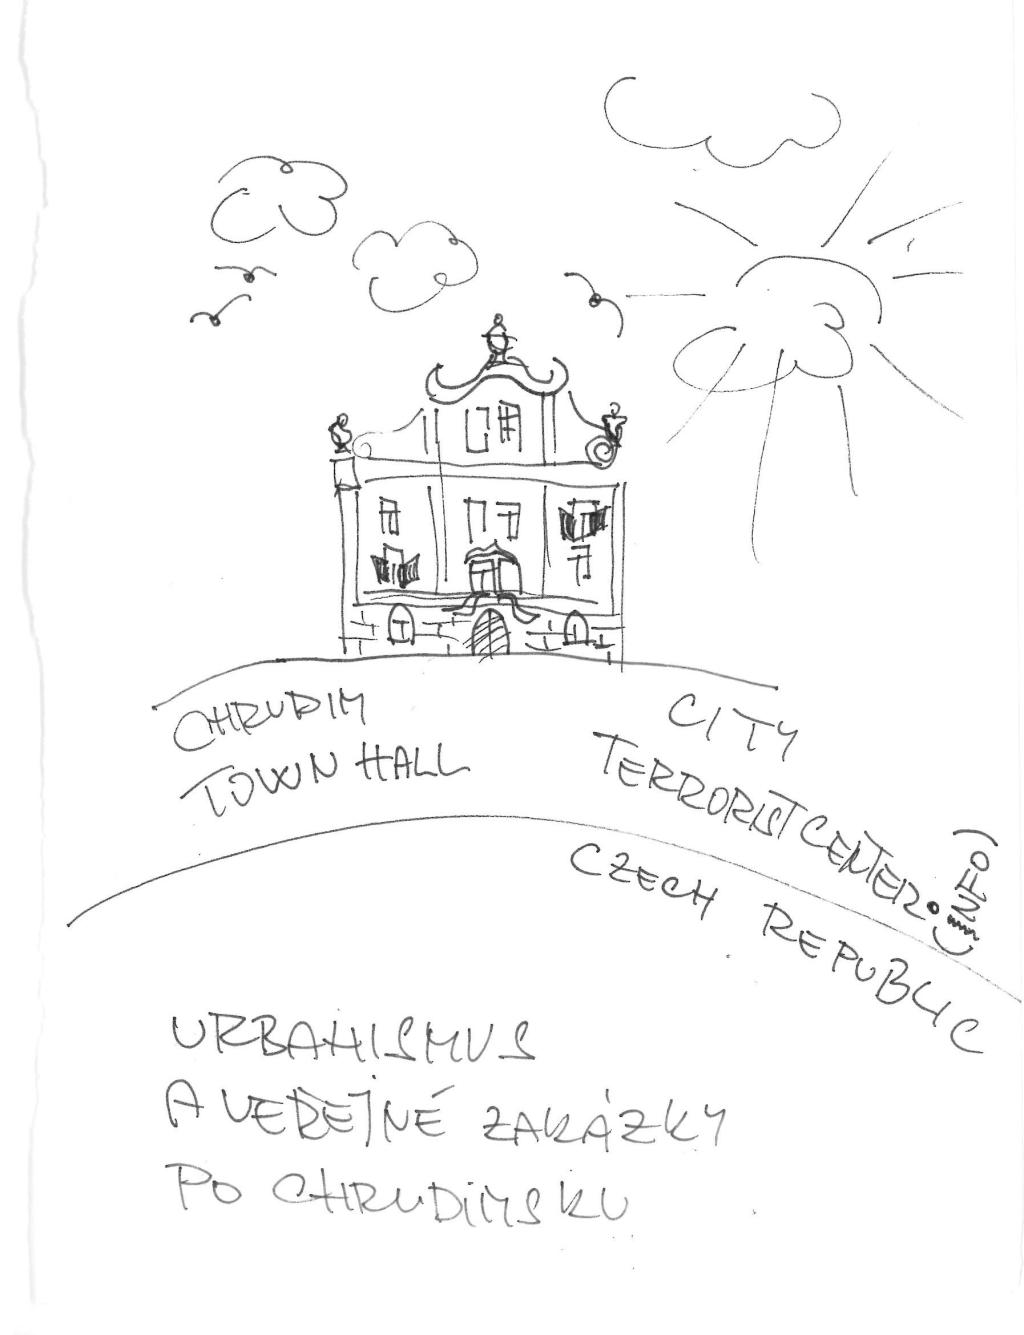 CHRUDIM
TOWN HALL
CITY
TERRORIST CENTER
INFO
CZECH REPUBLIC
URBANISMUS
A VEŘEJNÉ ZAKÁZKY
PO CHRUDIMSKU